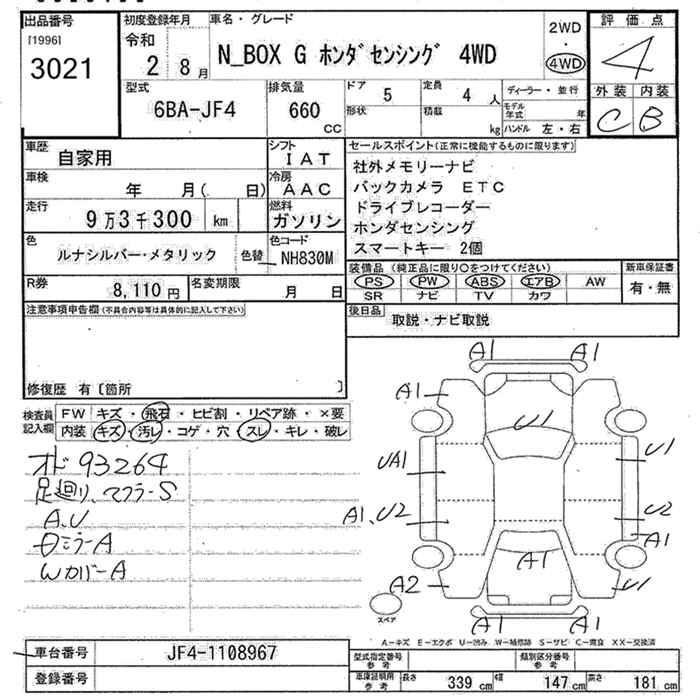 出品番号
[1996]
3021
初度登録年月
令和
2 8月
車名・グレード
N_BOX G ホンダセンシング 4WD
2WD
・
4WD
評価点
4
外装 内装
C B
型式
6BA-JF4
排気量
660
CC
ドア
5
定員
4 人
形状
積載
kg
ディーラー・並行
モデル年式
年
ハンドル 左・右
車歴
自家用
シフト
IAT
車検
年 月( 日)
冷房
AAC
走行
9万3千300 km
燃料
ガソリン
色
ルナシルバー・メタリック
色替
色コード
NH830M
R券
8,110円
名変期限
月 日
セールスポイント(正常に機能するものに限ります)
社外メモリーナビ
バックカメラ ETC
ドライブレコーダー
ホンダセンシング
スマートキー 2個
装備品(純正品に限り○をつけてください)
PS PW ABS エアB AW
SR ナビ TV カワ
新車保証書
有・無
後日品
取説・ナビ取説
注意事項申告欄(不具合内容等は具体的に記入して下さい)
修復歴 有〔箇所 〕
検査員
記入欄
FW キズ・飛石・ヒビ割・リペア跡・×要
内装 キズ・汚レ・コゲ・穴・スレ・キレ・破レ
オド93264
足廻り、マフラーS
A、U
ロミラーA
WカバーA
A1 A1
A1
U1
UA1
U1
A1、U2
U2
A1
A1
A2
U1
スペア
A1 A1
A-キズ E-エクボ U-凹み W-補修跡 S-サビ C-腐食 XX-交換済
車台番号
JF4-1108967
登録番号
型式指定番号
参考
類別区分番号
参考
車庫証明用
参考
長さ 339 cm
幅 147 cm
高さ 181 cm